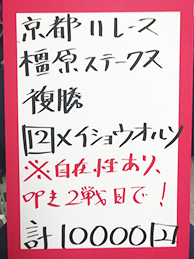 京都11レース
橿原ステークス
複勝
12メイショウオルソ
※自在性あり、
叩き2戦目で!
計10000円